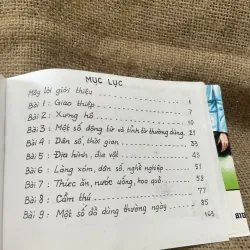 MỤC LỤC
Mấy lời giới thiệu 1
Bài 1 : Giao thiệp 7
Bài 2 : Xưng hô 9
Bài 3 : Một số động từ và tính từ thường dùng. 21
Bài 4 : Dân số, thời gian 33
Bài 5 : Địa hình, địa vật 43
Bài 6 : Làng xóm, dân số, nghề nghiệp 51
Bài 7 : Thức ăn, nước uống, hoa quả 58
Bài 8 : Cầm thú 77
Bài 9 : Một số đồ dùng thường ngày 85